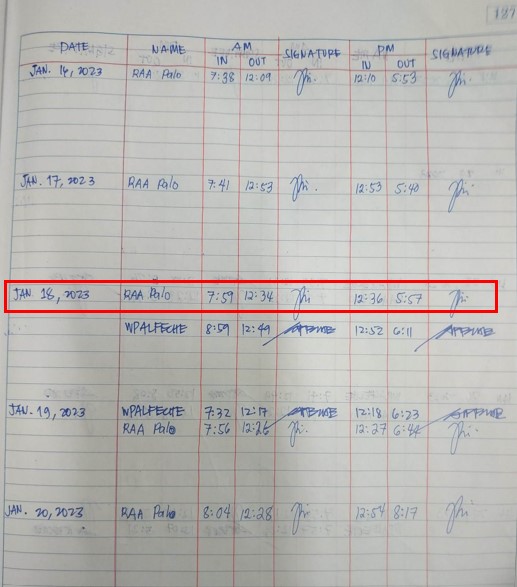 187
DATE NAME AM SIGNATURE PM SIGNATURE
IN OUT IN OUT
JAN. 16, 2023 RAA Palo 7:38 12:09 12:10 5:53
JAN. 17, 2023 RAA Palo 7:41 12:53 12:53 5:40
JAN. 18, 2023 RAA Palo 7:59 12:34 12:36 5:57
WPALFECHE 8:59 12:49 12:52 6:11
JAN. 19, 2023 WPALFECHE 7:32 12:17 12:18 6:23
RAA Palo 7:56 12:26 12:27 6:44
JAN. 20, 2023 RAA Palo 8:04 12:28 12:54 8:17